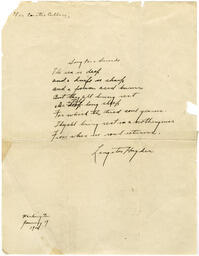 Song for a Suicide
The sea is deep
and a knife is sharp
and a poison acid burns
But they all bring rest
deep long sleep
For which the tired soul yearns
They all bring rest in a nothingness
From where no soul returns.
Langston Hughes
Washington
January